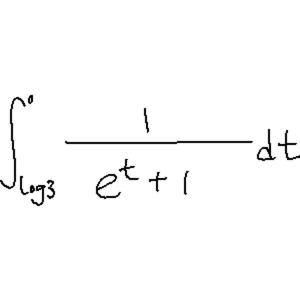 ∫_{log3}^{0} \frac{1}{e^t + 1} dt